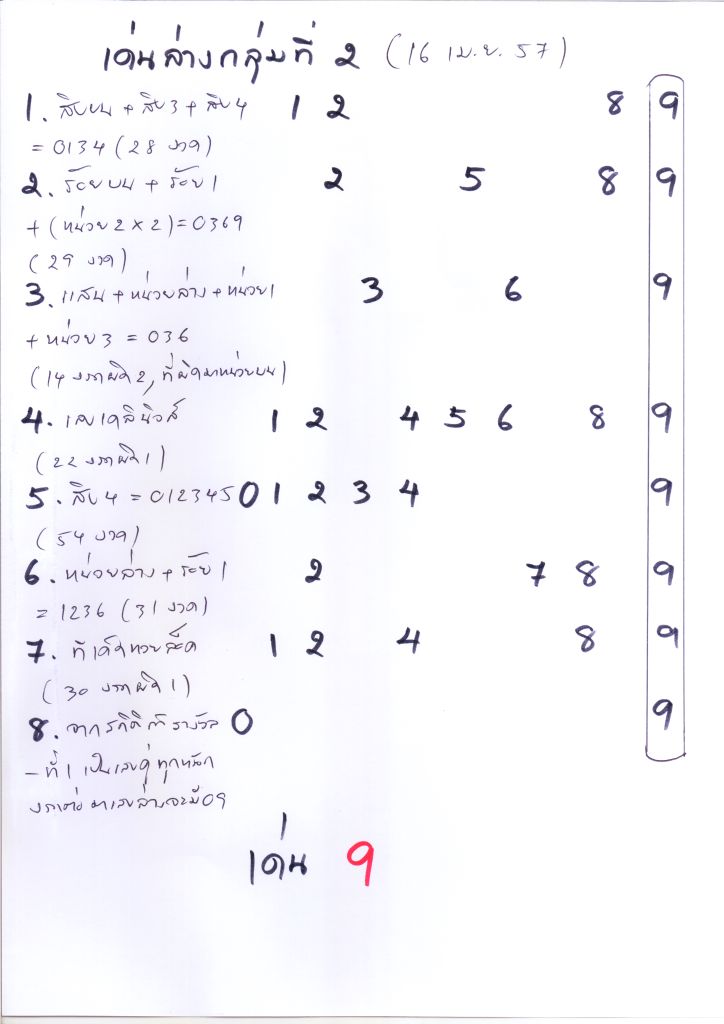 เด่นล่างกลุ่มที่ 2 (16 เม.ย. 57)
1. สิบบน + สิบ3 + สิบ4 1 2 8 9
= 0134 (28 งวด)
2. ร้อยบน + ร้อย1 2 5 8 9
+ (หน่วย 2 x 2) = 0369
(29 งวด)
3. แสน + หน่วยล่าง + หน่วย1 3 6 9
+ หน่วย 3 = 036
(14 งวดผิด 2, ที่ผิดมาหน่วยบน)
4. เลขเดลินิวส์ 1 2 4 5 6 8 9
(22 งวดผิด 1)
5. สิบ 4 = 012345 0 1 2 3 4 9
(54 งวด)
6. หน่วยล่าง + ร้อย 1 2 7 8 9
= 1236 (31 งวด)
7. ทีเด็ด 1 2 4 8 9
(30 งวดผิด 1)
8. จากสถิติ รางวัล 0 9
- ที่ 1 เป็นเลขคู่ทุกหลัก
งวดต่อมาเลขล่างจะมี 09
เด่น 9